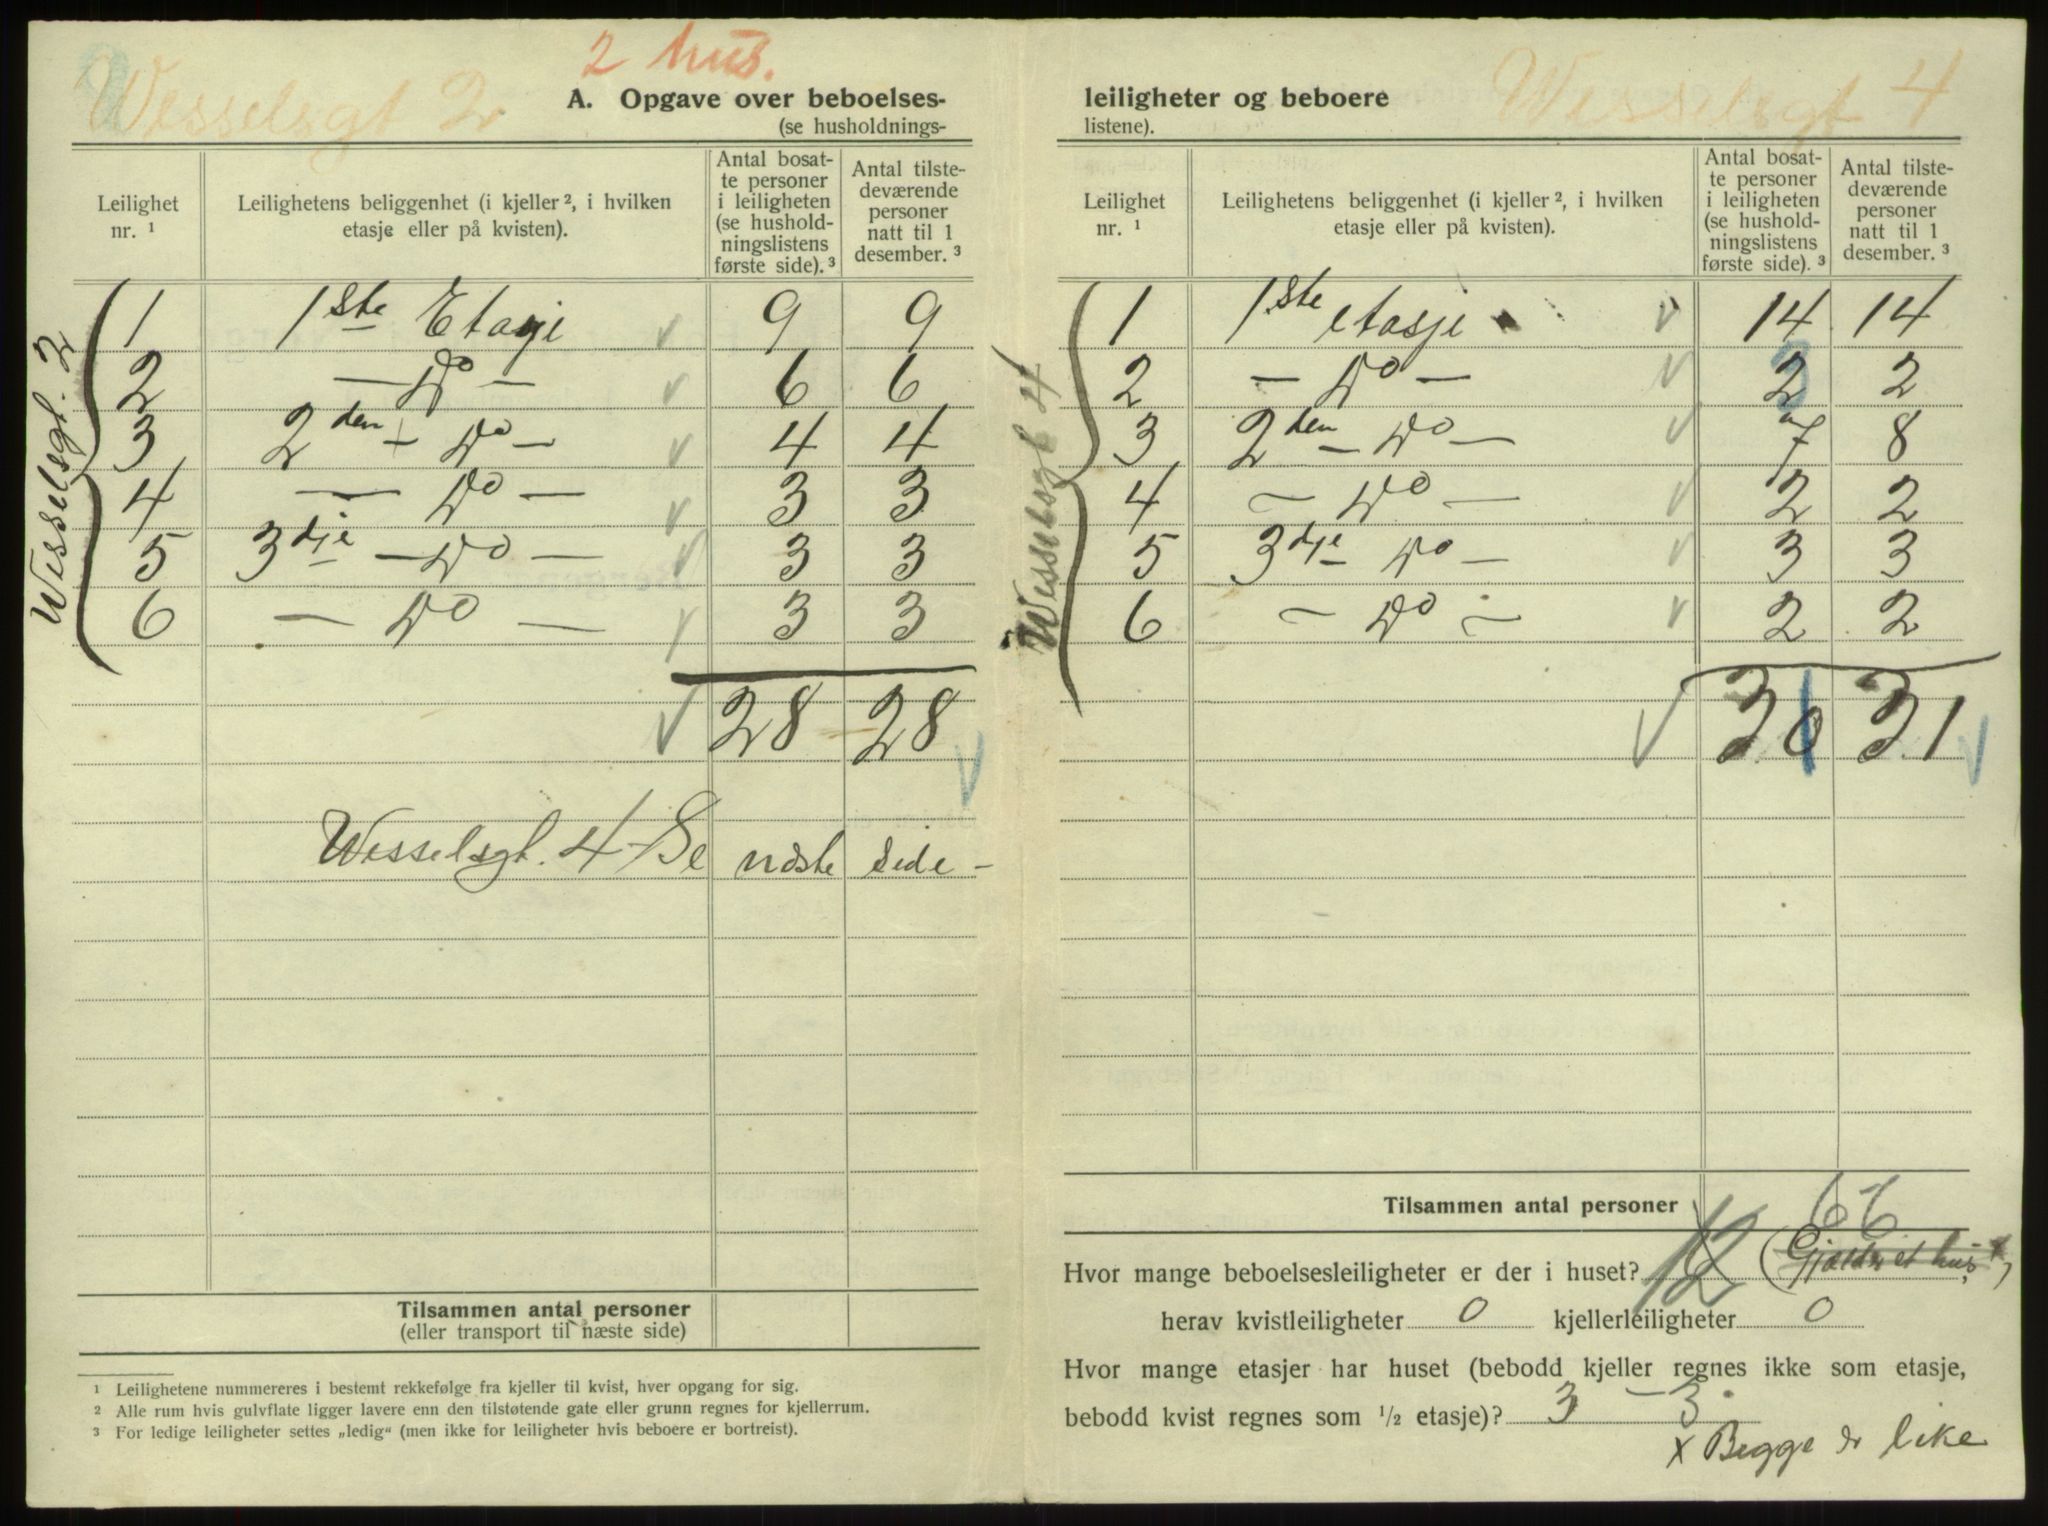 2 hus.
Wesselsgt 2
A. Opgave over beboelses-
(se husholdnings-
Leilighet nr. 1
Leilighetens beliggenhet (i kjeller 2, i hvilken etasje eller på kvisten).
Antal bosatte personer i leiligheten (se husholdningslistens første side). 3
Antal tilstedeværende personer natt til 1 desember. 3
Wesselsgt. 2
1 1ste Etasje 9 9
2 — Do — 6 6
3 2den — Do — 4 4
4 — Do — 3 3
5 3dje — Do — 3 3
6 — Do — 3 3
28 28
Wesselsgt. 4 Se næste side —
Tilsammen antal personer
(eller transport til næste side)
1 Leilighetene nummereres i bestemt rekkefølge fra kjeller til kvist, hver opgang for sig.
2 Alle rum hvis gulvflate ligger lavere enn den tilstøtende gate eller grunn regnes for kjellerrum.
3 For ledige leiligheter settes „ledig“ (men ikke for leiligheter hvis beboere er bortreist).
Wesselsgt 4
leiligheter og beboere
listene).
Leilighet nr. 1
Leilighetens beliggenhet (i kjeller 2, i hvilken etasje eller på kvisten).
Antal bosatte personer i leiligheten (se husholdningslistens første side). 3
Antal tilstedeværende personer natt til 1 desember. 3
Wesselsgt 4
1 1ste etasje 14 14
2 — Do — 2 2
3 2den — Do — 7 8
4 — Do — 2 2
5 3dje Do — 3 3
6 — Do — 2 2
30 31
Tilsammen antal personer 66
Hvor mange beboelsesleiligheter er der i huset? 12 (Gjælder et hus x)
herav kvistleiligheter 0 kjellerleiligheter 0
Hvor mange etasjer har huset (bebodd kjeller regnes ikke som etasje,
bebodd kvist regnes som 1/2 etasje)? 3 — 3.
x Begge er like